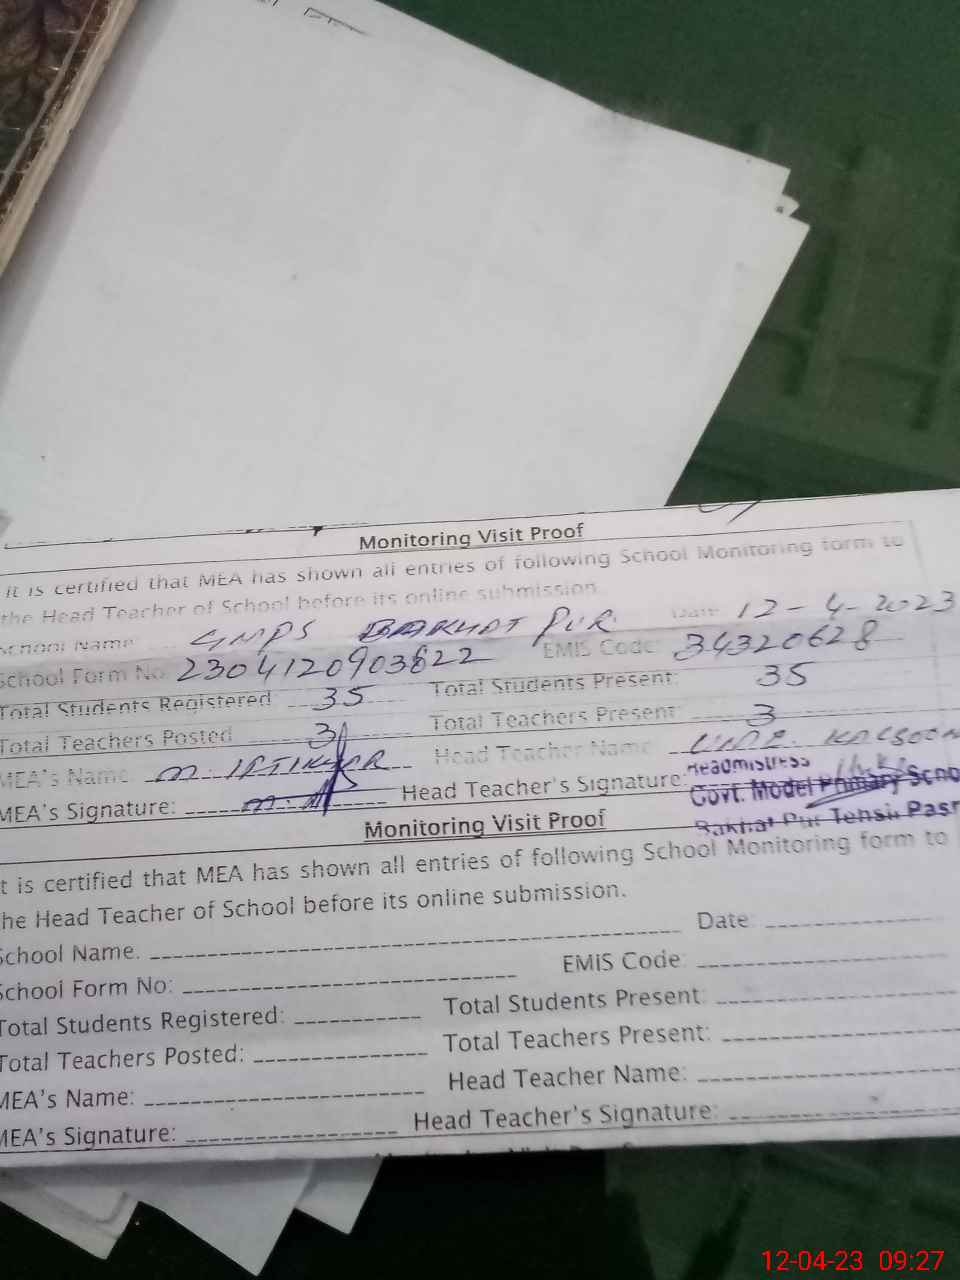 Monitoring Visit Proof
it is certified that MEA has shown all entries of following School Monitoring form to
the Head Teacher of School before its online submission.
School Name GMPS BAKHAT PUR Date 12-4-2023
School Form No. 2304120903822 EMIS Code: 34320628
Total Students Registered: 35 Total Students Present: 35
Total Teachers Posted 3 Total Teachers Present: 3
MEA's Name M. IFTIKHAR Head Teacher Name: KALSOOM
MEA's Signature: Head Teacher's Signature:
Headmistress
Govt. Model Primary Scho
Bakhat Pur Tehsil Pasr
Monitoring Visit Proof
t is certified that MEA has shown all entries of following School Monitoring form to
he Head Teacher of School before its online submission.
School Name. Date:
School Form No: EMIS Code:
Total Students Registered: Total Students Present:
Total Teachers Posted: Total Teachers Present:
MEA's Name: Head Teacher Name:
MEA's Signature: Head Teacher's Signature:
12-04-23 09:27